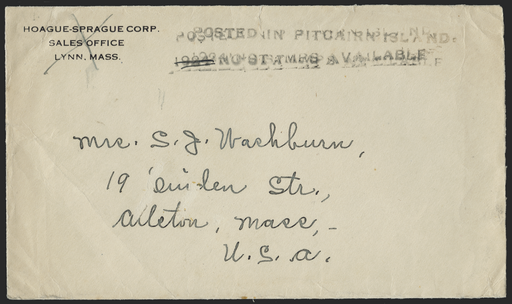 HOAGUE-SPRAGUE CORP.
SALES OFFICE
LYNN, MASS.
POSTED IN PITCAIRN ISLAND.
NO STAMPS AVAILABLE
Mrs. S. J. Washburn,
19 Linden Str.,
Allston, Mass, -
U. S. A.